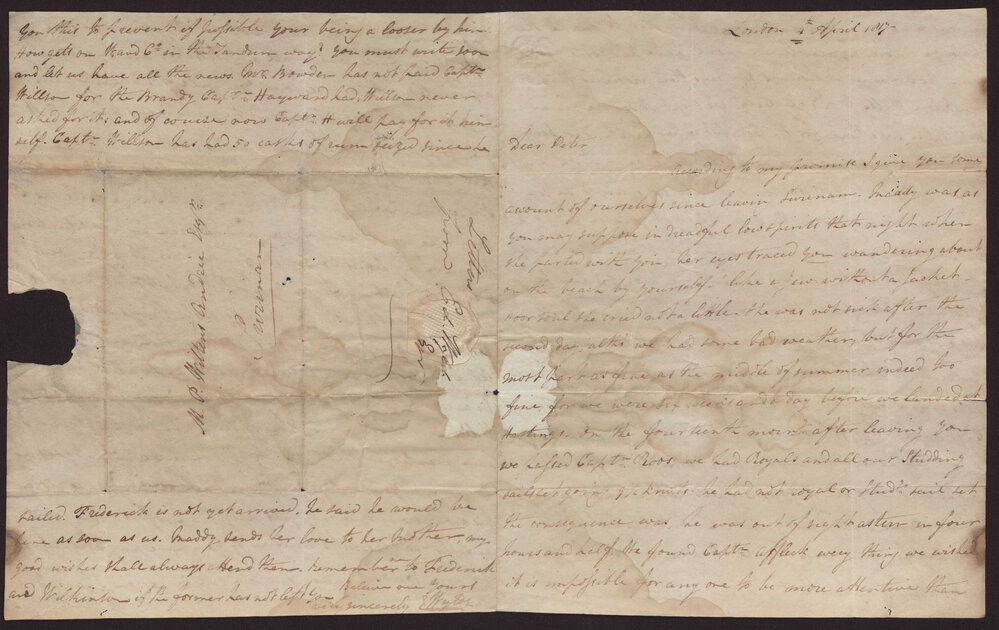 London 4th April 1817
Dear Peter
According to my promise I give you some
account of ourselves since leavin Surenam. Maddy was as
you may suppose in dreadful low spirits that night when
she parted with you, her eyes traced you wandering about
on the beach by yourself. like a Jew without a Jacket.
poor soul she cried not a little. She was not sick after the
second day, altho' we had some bad weather, but for the
most part as fine as the middle of summer indeed too
fine for we were six weeks and a day before we landed at
Hastings. On the fourteenth morng after leaving you
we passed Captn Roos, we had Royals and all our Studding
sails set going 9½ knots he had not royal or Studg sail set
the consequence was he was out of sight astern in four
hours and half. We found Captn Affleck every thing we wished
it is impossible for any one to be more attentive than
you this to prevent if possible your being a looser by him
How gets on W and Co in the Tandum way? you must write soon
and let us have all the news. Mr Bowden has not paid Captn
Willson for the Brandy Captn Hayward had, Willson never
asked for it; and of course now Captn H will pay for it him
self. Captn Willson has had 50 casks of rum seized since he
M. P. Wilkens Andrée Esqr
Surenam
Letter
from
sailed. Frederick is not yet arrived. he said he would be
here as soon as us. Maddy sends her love to her Mother, my
good wishes shall always attend them. remember me to Frederick
and Wilkinson if the former has not left you
Believe me Yours
very sincerely